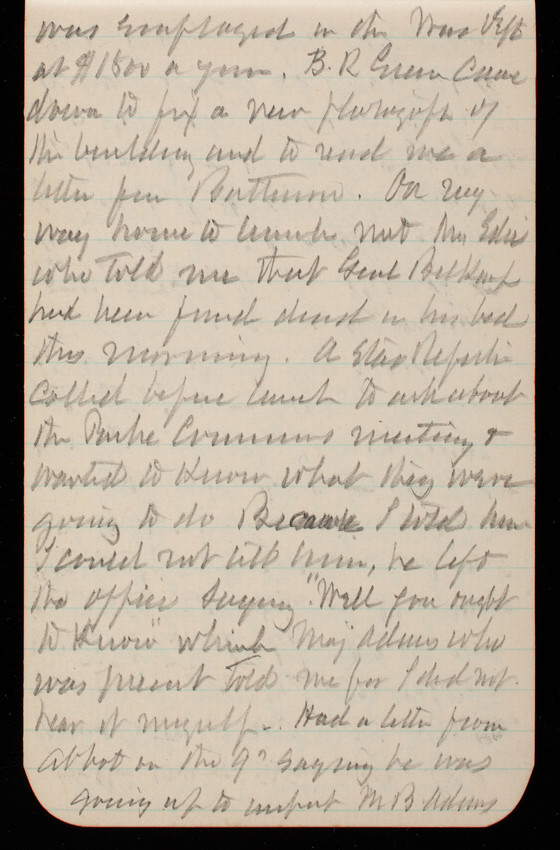 was employed in the War Dept
at $1800 a year. B. R. Green came
down to fix a new photograph of
the building and to read me a
letter from Patterson. On my
way home to lunch met Mr
who told me that Genl Belknap
had been found dead in his bed
this morning. A Star Reporter
called before lunch to ask about
the Park Commrs meeting &
wanted to know what they were
going to do Because I told him
I could not tell him, he left
the office saying "Well you ought
to know" which Maj Adams who
was present told me for I did not
hear it myself. Had a letter from
Abbot on the 9" saying he was
going up to inspect M B Adams